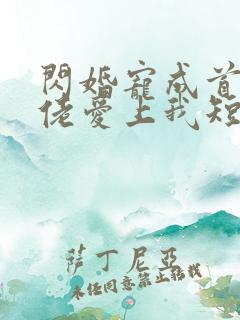 閃婚寵成首
佬愛上我短
薩丁尼亞
未經同意禁止轉載